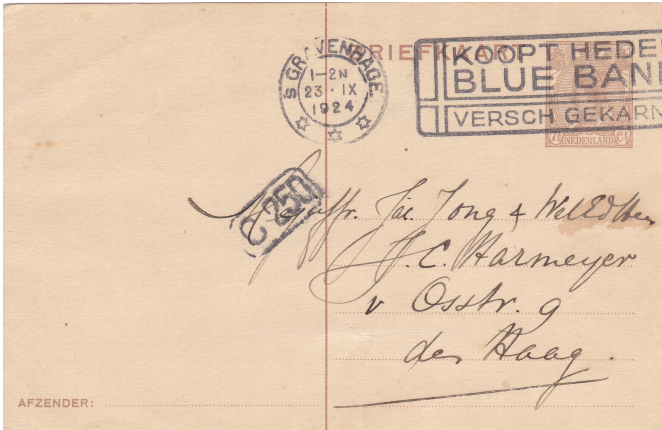 BRIEFKAART
'S GRAVENHAGE
1-2N
23·IX
1924
KOOPT HEDEN
BLUE BAND
VERSCH GEKARN
7½ NEDERLAND Ct
2 250
Jong & WelEdHeer
J. C. Harmeyer
v Osstr. 9
den Haag.
AFZENDER: